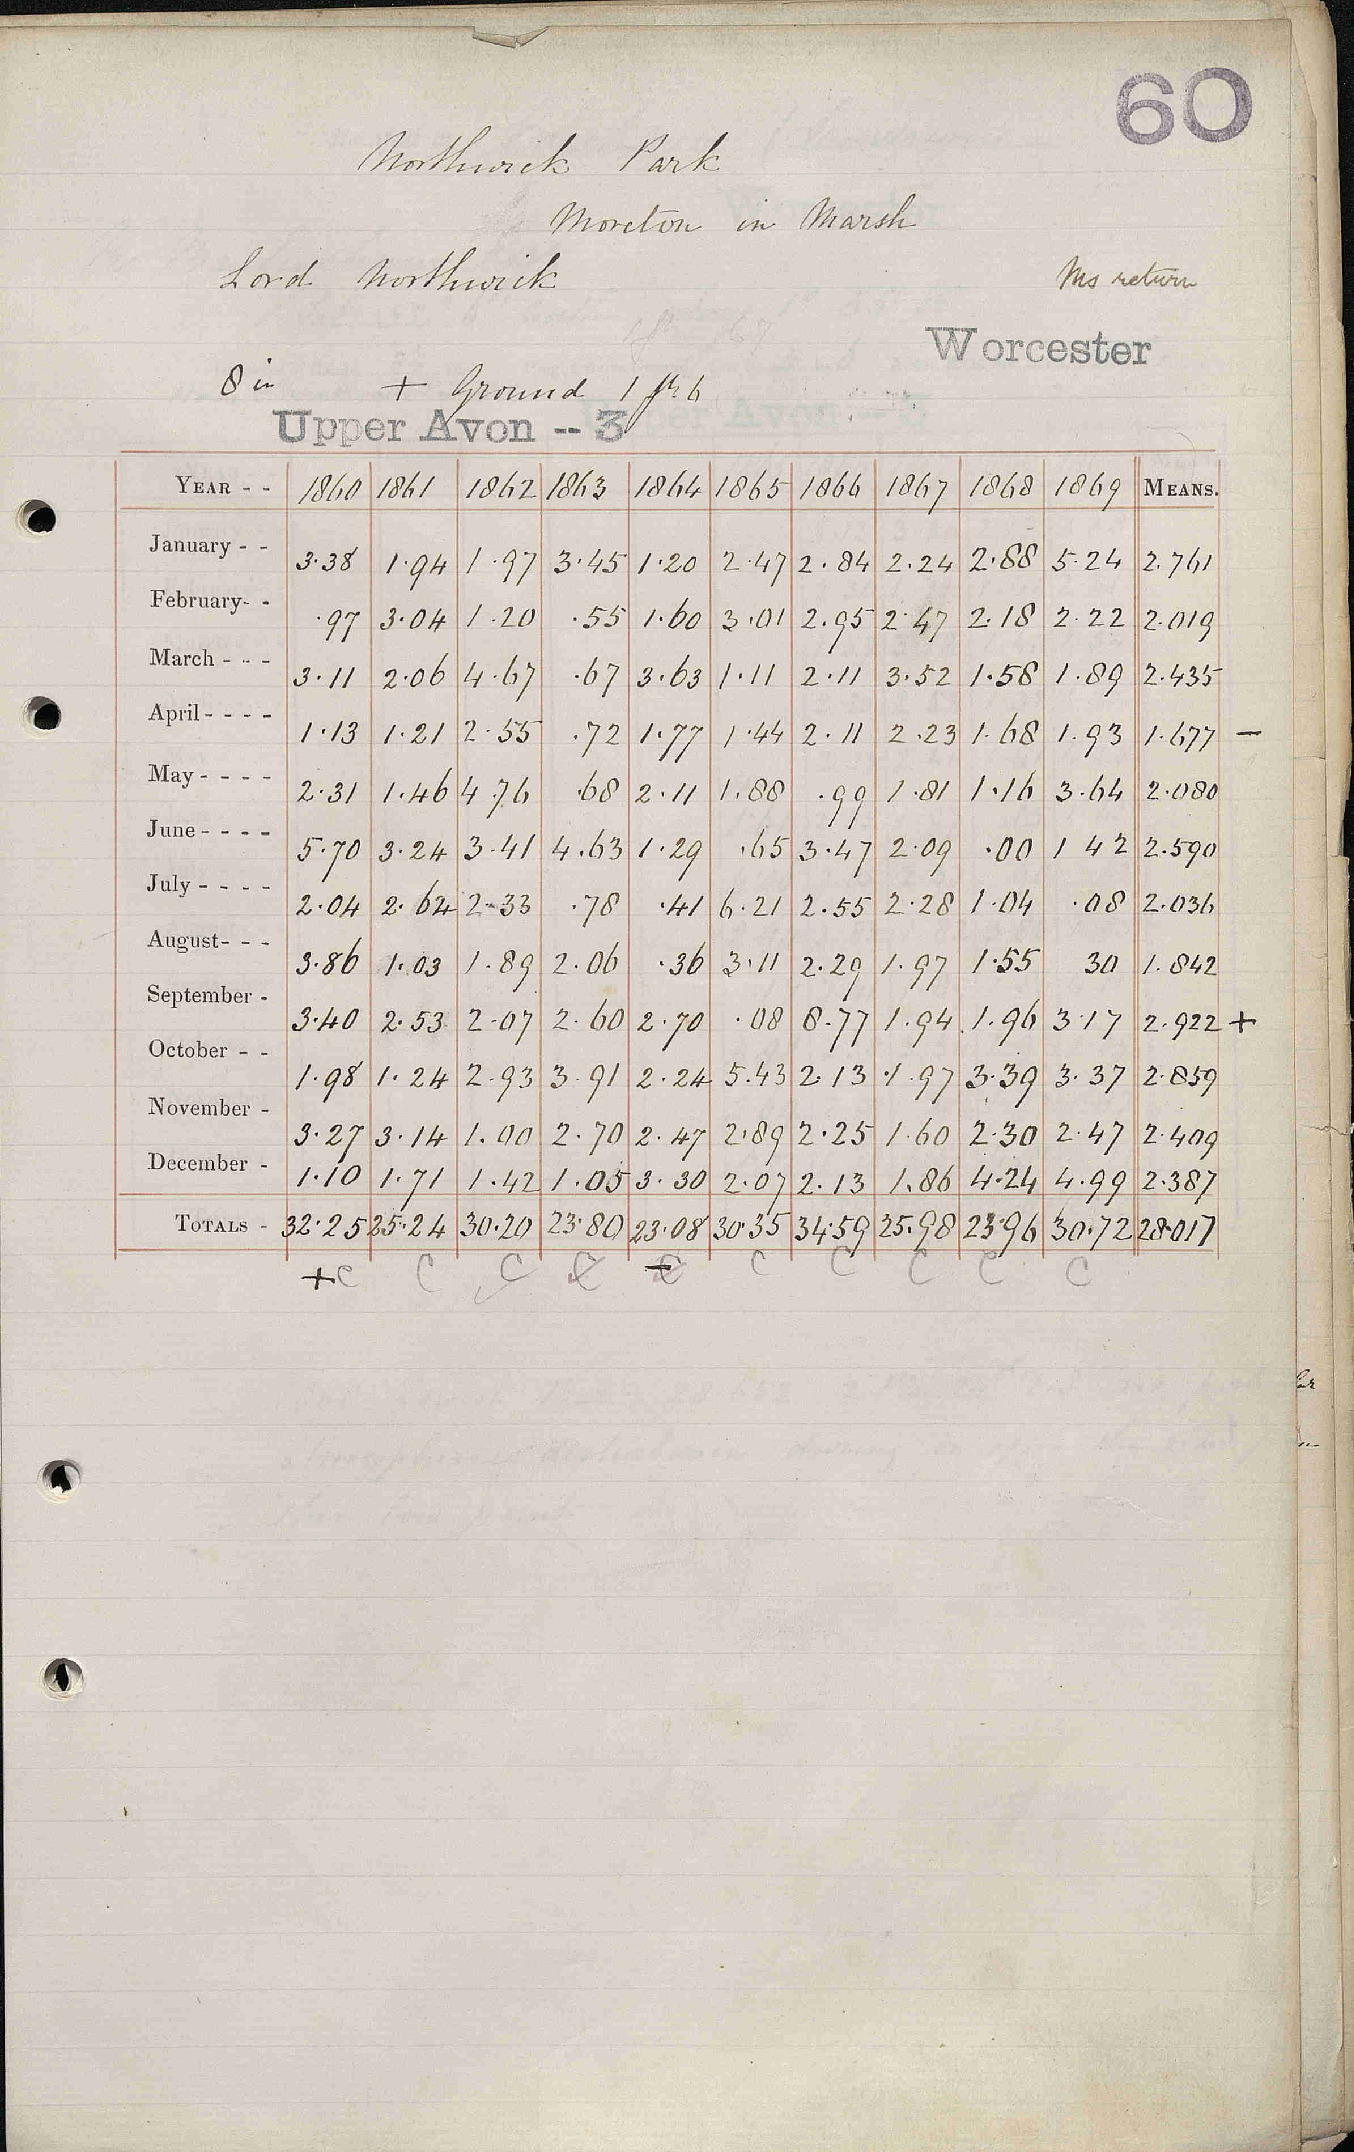 60
Northwick Park
Moreton in Marsh
Lord Northwick
Ms return
Worcester
8 in + Ground 1 ft 6
Upper Avon -- 3
YEAR - - 1860 1861 1862 1863 1864 1865 1866 1867 1868 1869 MEANS.
January - - 3.38 1.94 1.97 3.45 1.20 2.47 2.84 2.24 2.88 5.24 2.761
February- - .97 3.04 1.20 .55 1.60 3.01 2.95 2.47 2.18 2.22 2.019
March - - - 3.11 2.06 4.67 .67 3.63 1.11 2.11 3.52 1.58 1.89 2.435
April - - - - 1.13 1.21 2.55 .72 1.77 1.44 2.11 2.23 1.68 1.93 1.677 -
May - - - - 2.31 1.46 4.76 .68 2.11 1.88 .99 1.81 1.16 3.64 2.080
June - - - - 5.70 3.24 3.41 4.63 1.29 .65 3.47 2.09 .00 1 42 2.590
July - - - - 2.04 2.62 2.33 .78 .41 6.21 2.55 2.28 1.04 .08 2.036
August- - - 3.86 1.03 1.89 2.06 .36 3.11 2.29 1.97 1.55 30 1.842
September - 3.40 2.53 2.07 2.60 2.70 .08 8.77 1.94 1.96 3.17 2.922 +
October - - 1.98 1.24 2.93 3.91 2.24 5.43 2.13 1.97 3.39 3.37 2.859
November - 3.27 3.14 1.00 2.70 2.47 2.89 2.25 1.60 2.30 2.47 2.409
December - 1.10 1.71 1.42 1.05 3.30 2.07 2.13 1.86 4.24 4.99 2.387
TOTALS - 32.25 25.24 30.20 23.80 23.08 30.35 34.59 25.98 23.96 30.72 28.017
+ C C C C - C C C C C C